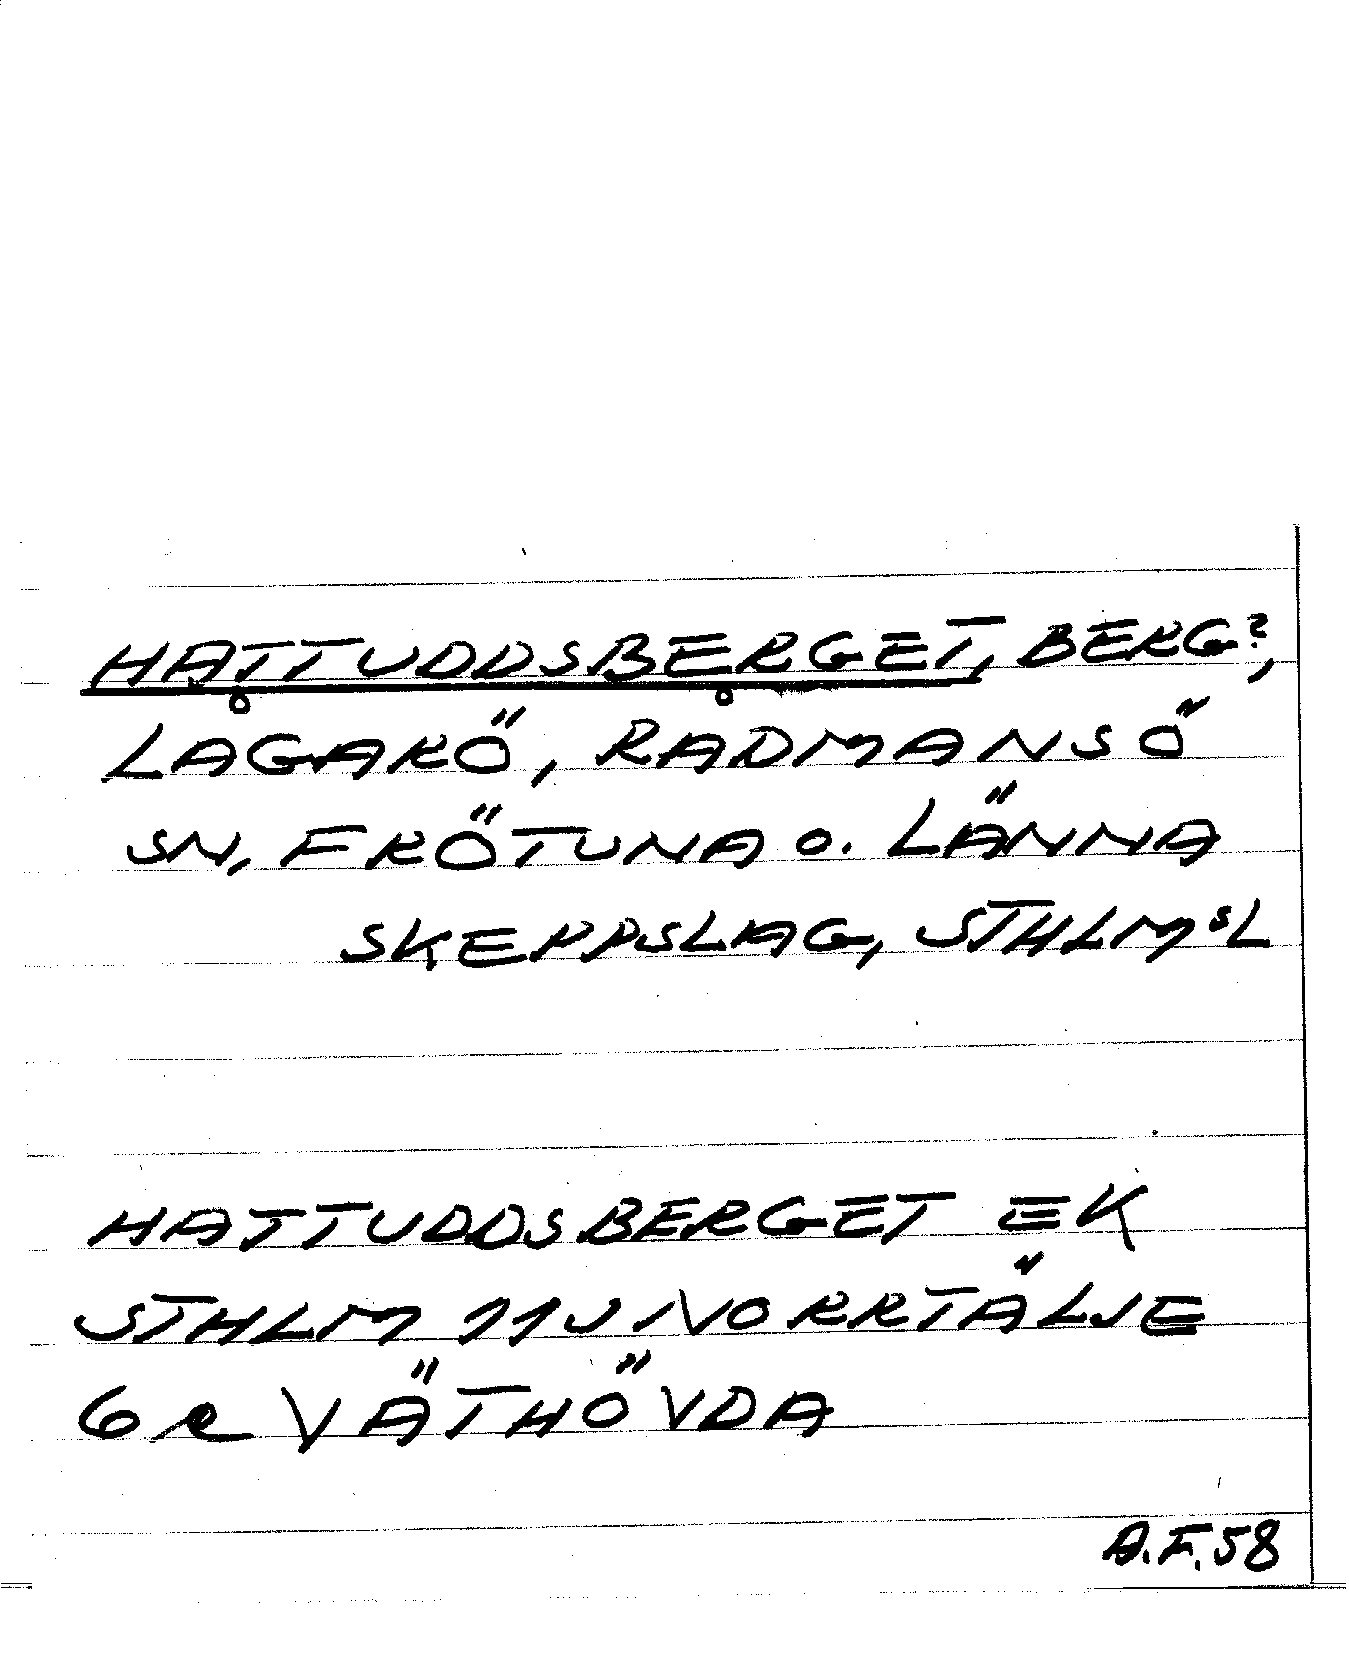 HATTUDDSBERGET, BERG?,
LÅGARÖ, RÅDMANSÖ
SN, FRÖTUNA o. LÄNNA
SKEPPSLAG, STHLMSL
HATTUDDSBERGET EK
STHLM 11J NORRTÄLJE
6e VÄTHÖVDA
A.F.58